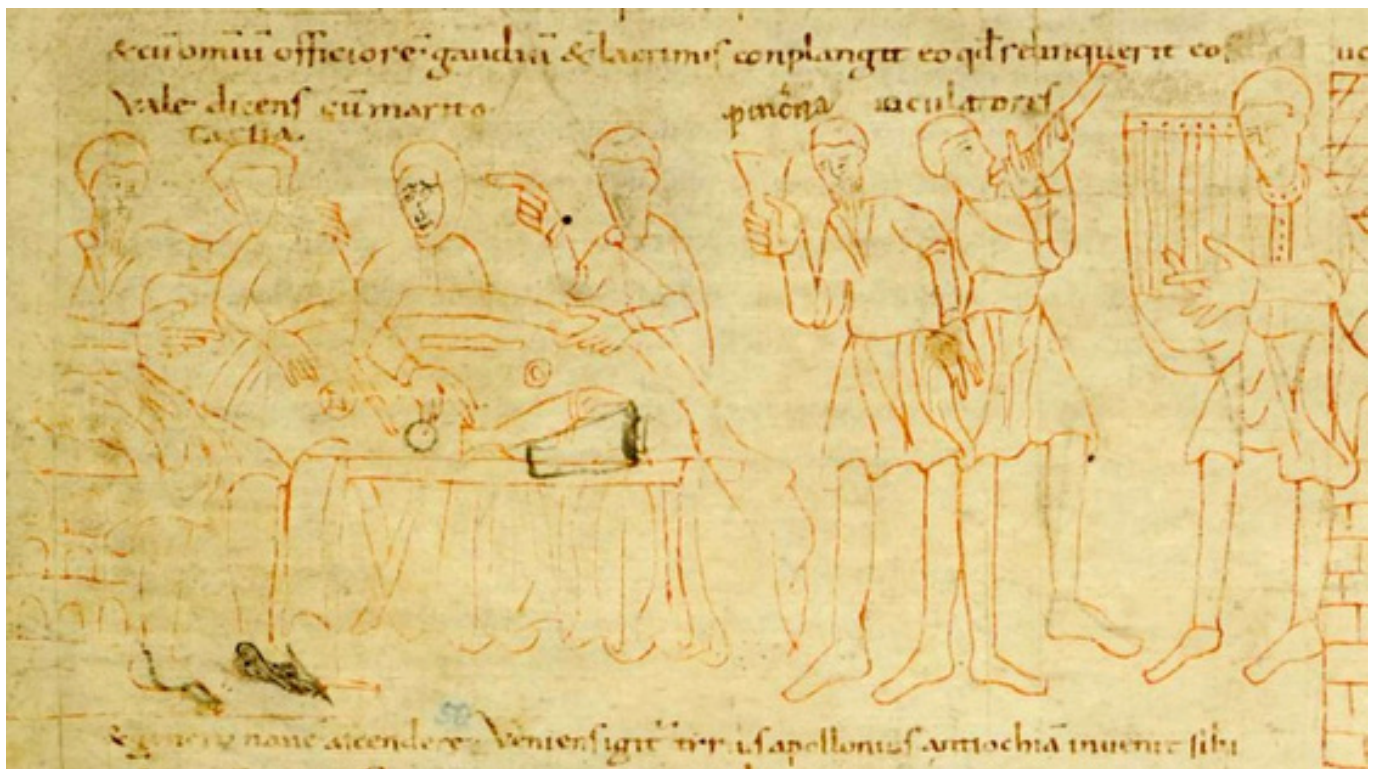 &cū omiū officiorē· gaudiū & lacrimis conplangit eo qd relinquerit eo
Vale dicens cū marito· pincerna iaculatores
& genero nave ascendere· Veniens igit tirius apollonius antiochiā invenit sibi